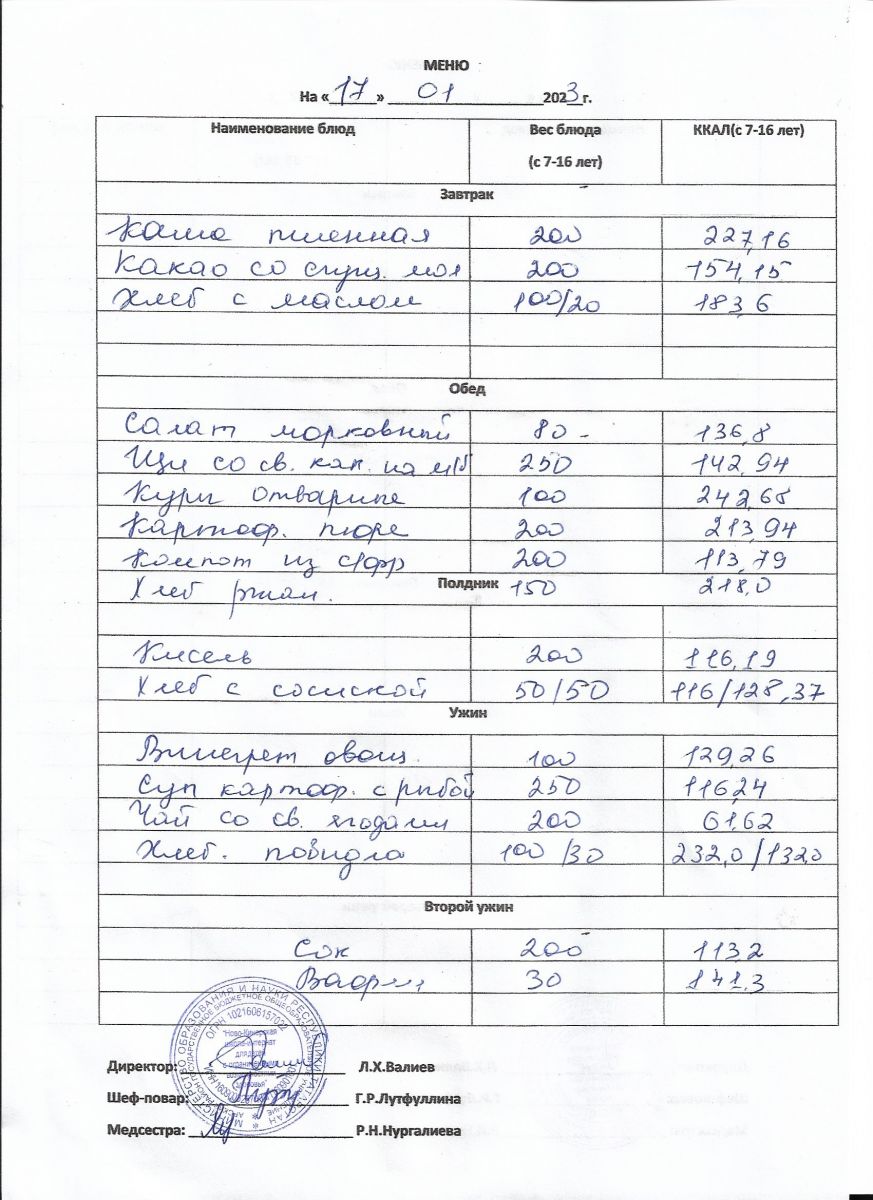 МЕНЮ
На «17» 01 2023 г.
Наименование блюд Вес блюда (с 7-16 лет) ККАЛ(с 7-16 лет)
Завтрак
Каша пшенная 200 227,16
Какао со сгущ. мол 200 154,15
Хлеб с маслом 100/20 183,6
Обед
Салат морковный 80 - 136,8
Щи со св. кап. на м/б 250 142,94
Куры отварные 100 242,65
Картоф. пюре 200 213,94
Компот из с/фр 200 113,79
Хлеб ржан. 150 218,0
Полдник
Кисель 200 116,19
Хлеб с сосиской 50/50 116/128,37
Ужин
Винегрет овощ. 100 129,26
Суп картоф. с рыбой 250 116,24
Чай со св. ягодами 200 61,62
Хлеб. повидло 100/30 232,0/132,0
Второй ужин
Сок 200 113,2
Вафли 30 141,3
Директор: Л.Х.Валиев
Шеф-повар: Г.Р.Лутфуллина
Медсестра: Р.Н.Нургалиева
МИНИСТЕРСТВО ОБРАЗОВАНИЯ И НАУКИ РЕСПУБЛИКИ ТАТАРСТАН
ОГРН 1021606157022
"Ново-Кинерская
школа-интернат
для детей
с ограниченными
возможностями
здоровья"